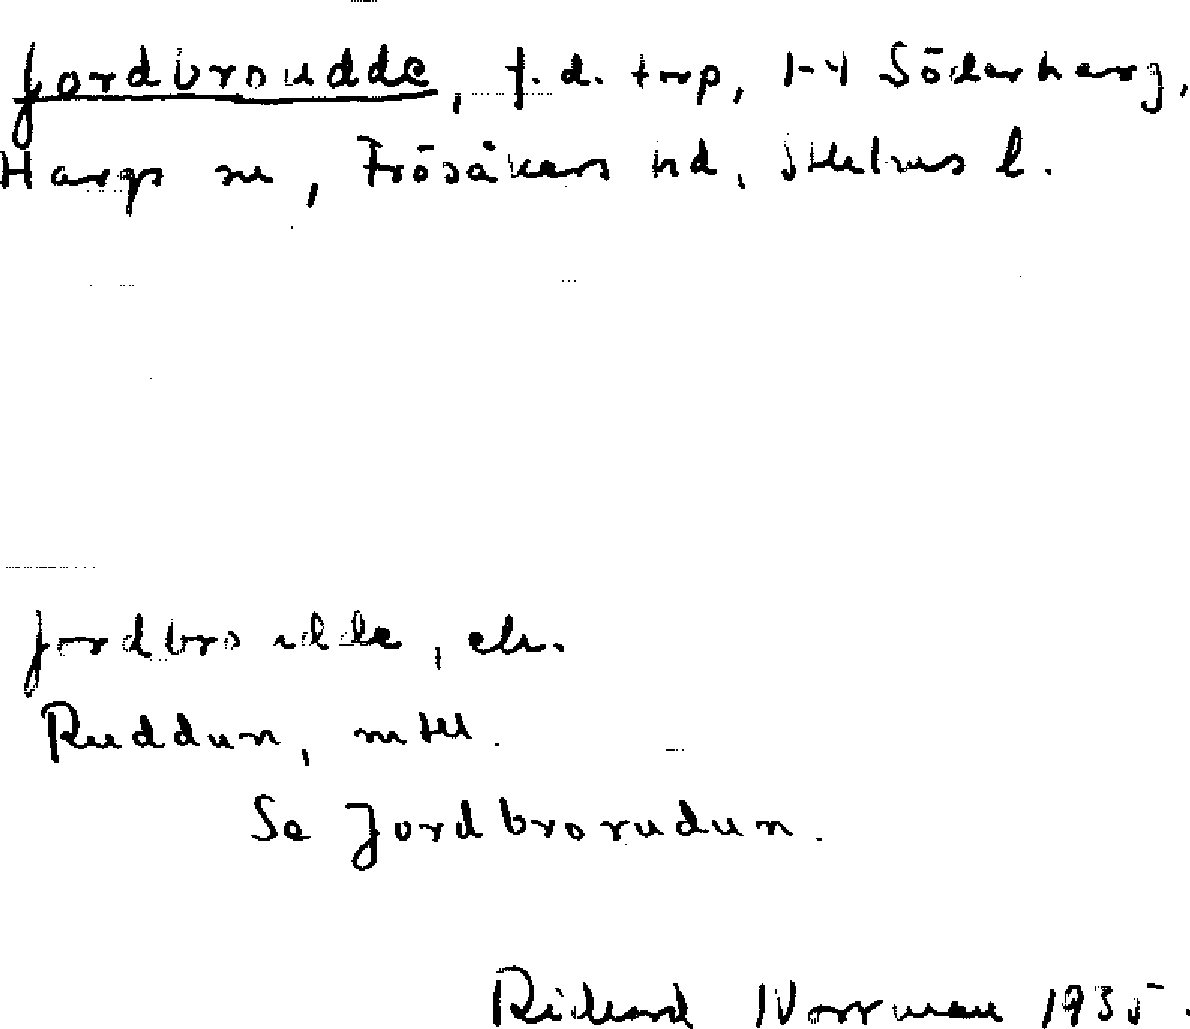 Jordbroudde, f.d. torp, 1-4 Söderharg,
Hargs sn, Frösåkers hd, Sthlms l.
Jordbroudde, ek.
Ruddun, mtl.
Se Jordbrorudun.
Richard Norrman 1935.